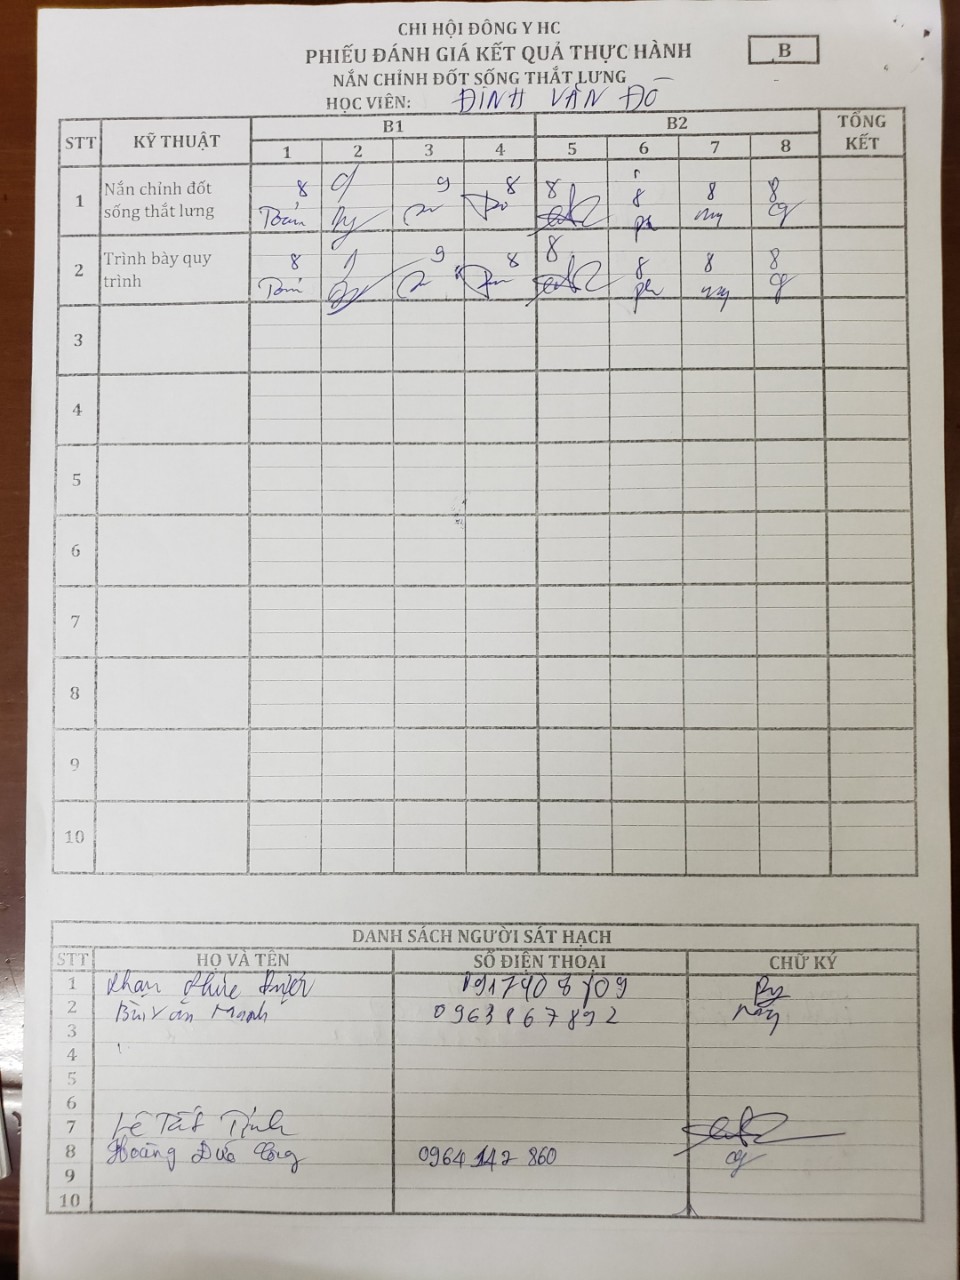 CHI HỘI ĐÔNG Y HC
PHIẾU ĐÁNH GIÁ KẾT QUẢ THỰC HÀNH
B
NẮN CHỈNH ĐỐT SỐNG THẮT LƯNG
HỌC VIÊN: ĐINH VĂN ĐÔ
STT KỸ THUẬT B1 B2 TỔNG KẾT
1 2 3 4 5 6 7 8
1 Nắn chỉnh đốt sống thắt lưng 8 9 9 8 8 8 8 8
2 Trình bày quy trình 8 9 8 8 8 8 8
3
4
5
6
7
8
9
10
DANH SÁCH NGƯỜI SÁT HẠCH
STT HỌ VÀ TÊN SỐ ĐIỆN THOẠI CHỮ KÝ
1
2 Bùi Văn Mạnh 0963867892
3
4
5
6
7 Lê Tất Tính
8 Hoàng Đức Công 0964 142 860
9
10